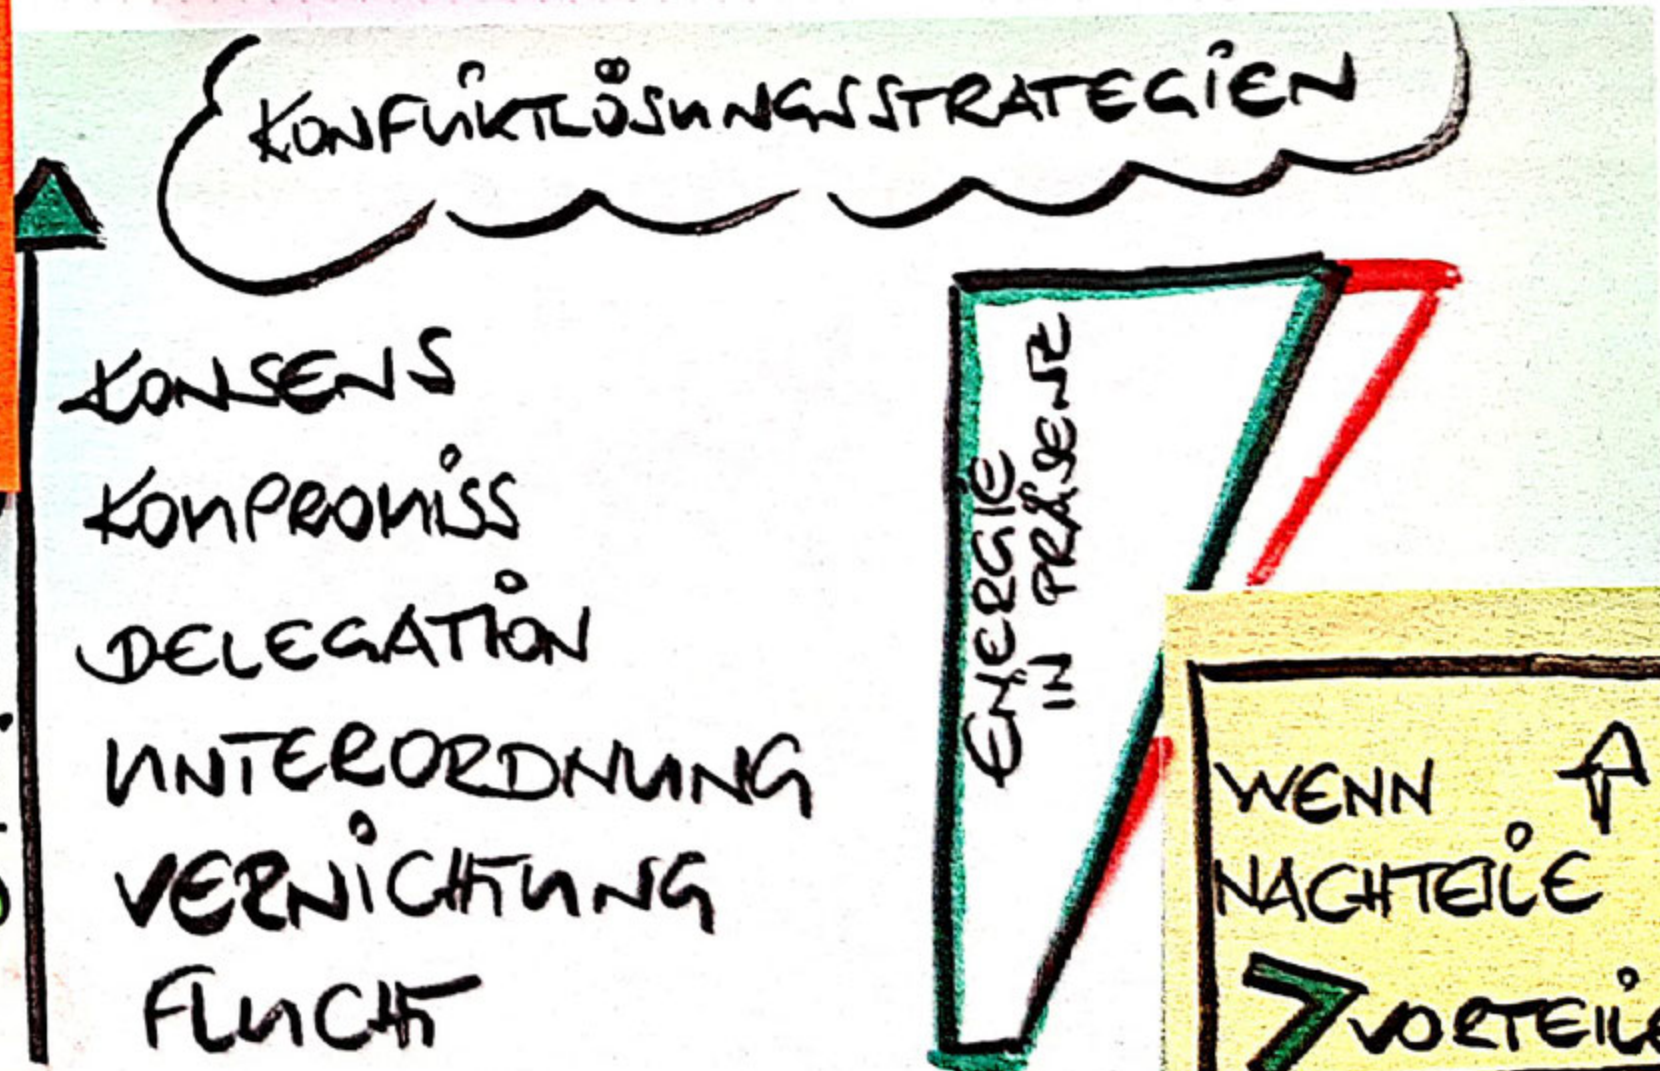 KONFLIKTLÖSUNGSSTRATEGIEN
KONSENS
KOMPROMISS
DELEGATION
UNTERORDNUNG
VERNICHTUNG
FLUCHT
ENERGIE
IN PRÄSENZ
WENN
NACHTEILE
> VORTEILE